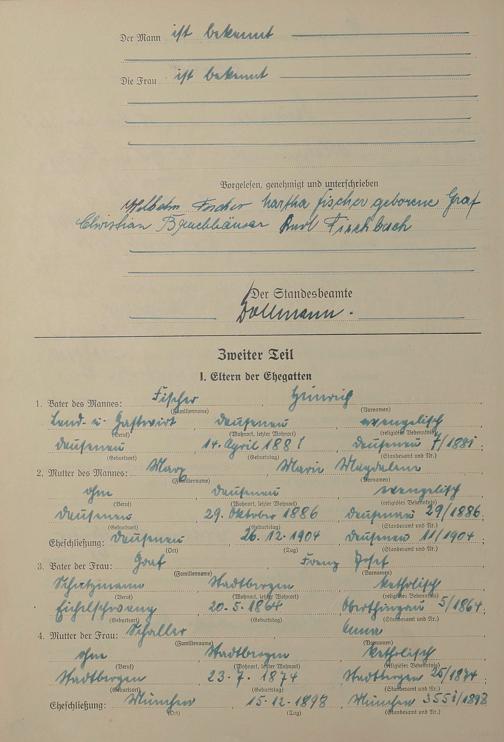 Der Mann ist bekannt
Die Frau ist bekannt
Vorgelesen, genehmigt und unterschrieben
Wilhelm Fischer Martha Fischer geborene Graf
Christian Karl Fischbach
Der Standesbeamte
Dollmann.
Zweiter Teil
I. Eltern der Ehegatten
1. Vater des Mannes: Fischer Heinrich
(Familienname) (Vornamen)
Land- u. Gastwirt Dausenau evangelisch
(Beruf) (Wohnort, letzter Wohnort) (religiöses Bekenntnis)
Dausenau 14. April 1881 Dausenau 7/1881
(Geburtsort) (Geburtstag) (Standesamt und Nr.)
2. Mutter des Mannes: Marie Magdalene
(Familienname) (Vornamen)
ohne Dausenau evangelisch
(Beruf) (Wohnort, letzter Wohnort) (religiöses Bekenntnis)
Dausenau 29. Oktober 1886 Dausenau 29/1886.
(Geburtsort) (Geburtstag) (Standesamt und Nr.)
Eheschließung: Dausenau 26.12.1904 Dausenau 11/1904.
(Ort) (Tag) (Standesamt und Nr.)
3. Vater der Frau: Graf Franz Josef
(Familienname) (Vornamen)
Schutzmann Stadtbergen katholisch
(Beruf) (Wohnort, letzter Wohnort) (religiöses Bekenntnis)
20.5.1864 5/1864.
(Geburtsort) (Geburtstag) (Standesamt und Nr.)
4. Mutter der Frau: Schaller Anna
(Familienname) (Vornamen)
ohne Stadtbergen katholisch
(Beruf) (Wohnort, letzter Wohnort) (religiöses Bekenntnis)
Stadtbergen 23.7.1874 Stadtbergen 25/1874
(Geburtsort) (Geburtstag) (Standesamt und Nr.)
Eheschließung: München 15.12.1898 München
(Ort) (Tag) (Standesamt und Nr.)